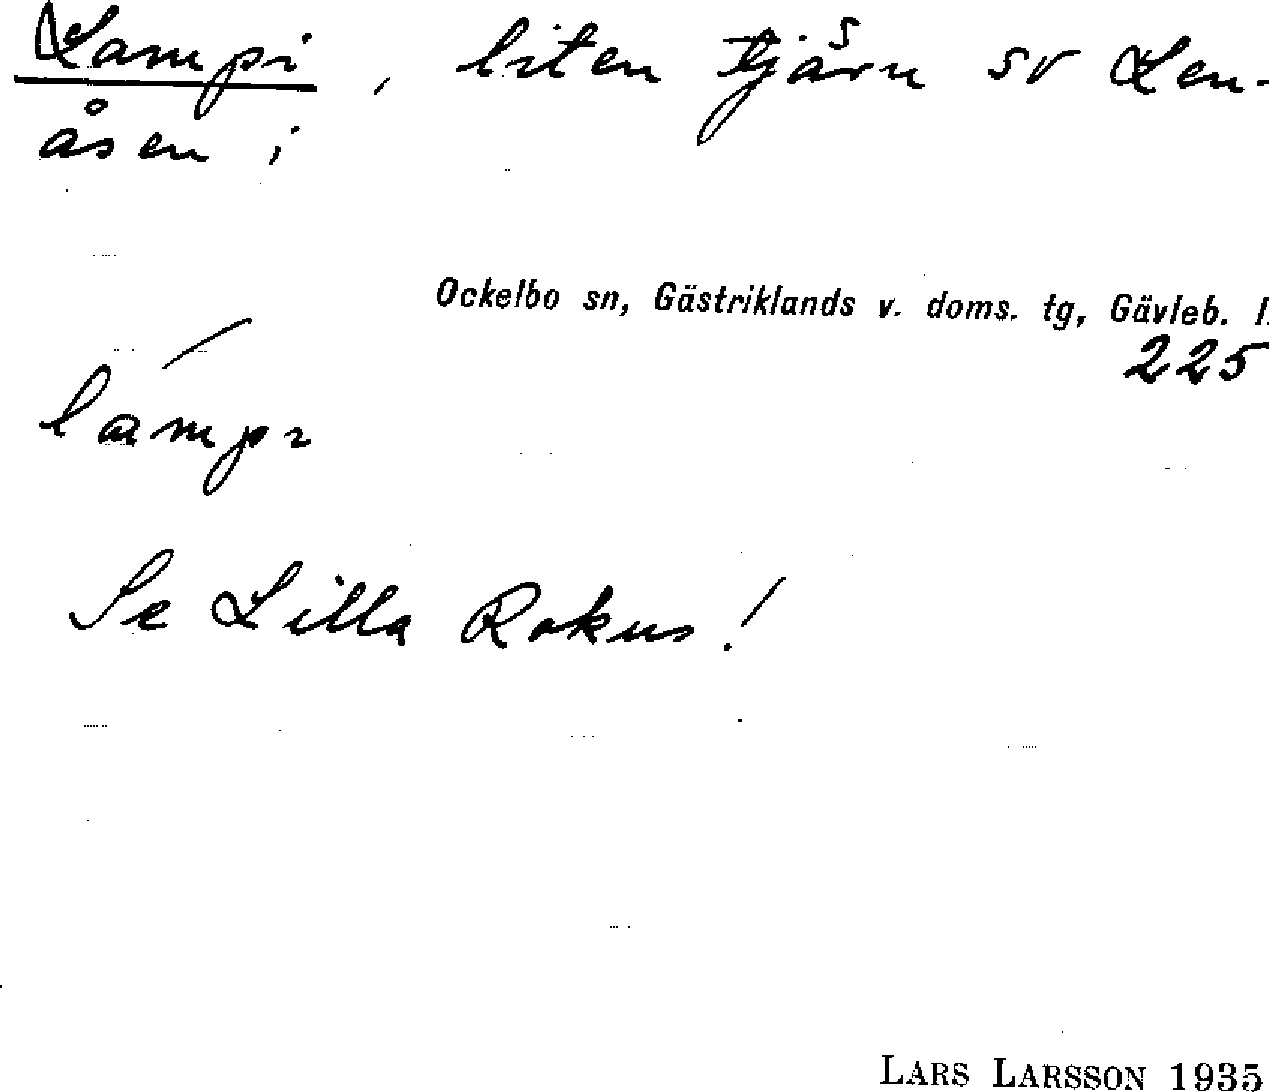 Lampi, liten tjärn sv Len-
åsen i
Ockelbo sn, Gästriklands v. doms. tg, Gävleb. l.
225
lampı
Se Lilla Rokus!
LARS LARSSON 1935